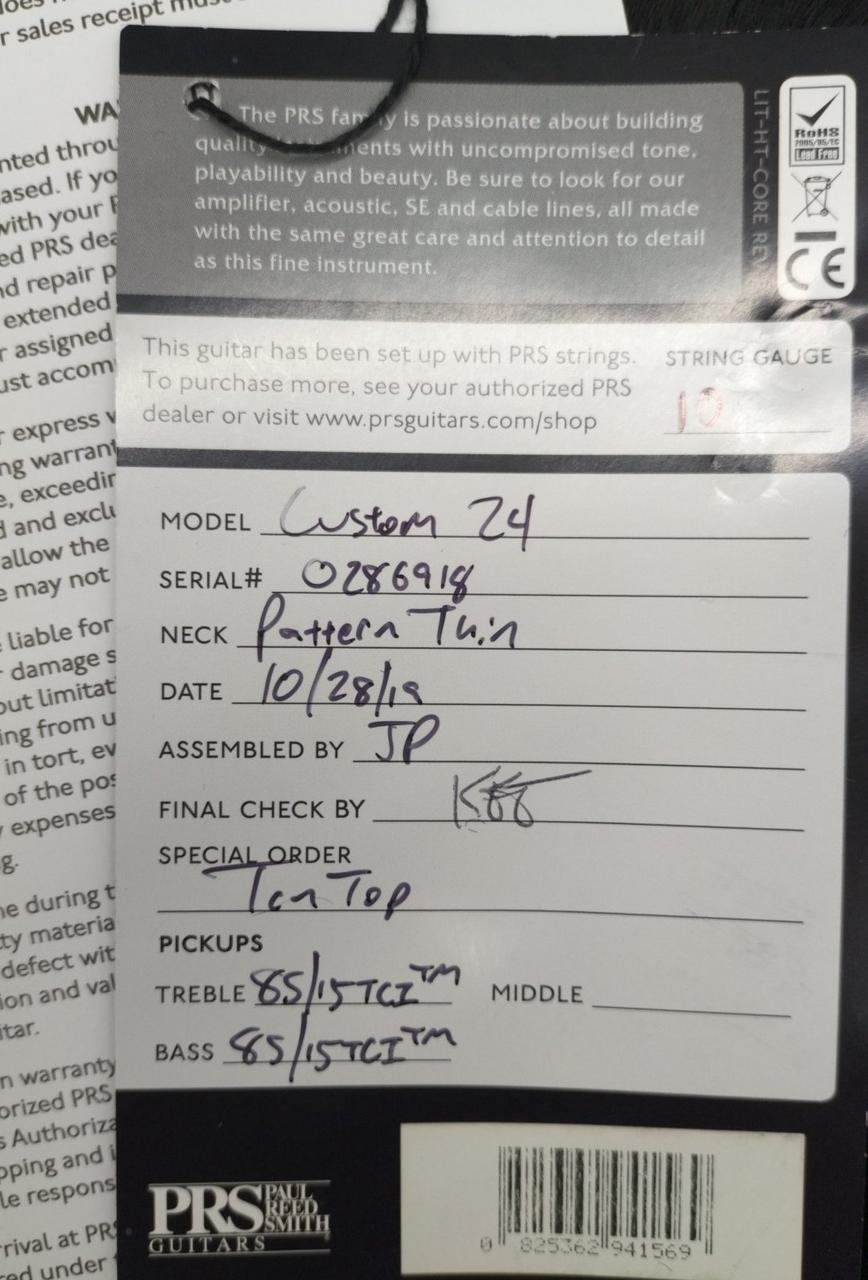 r sales receipt
WA
nted throu
ased. If yo
with your
ed PRS dea
nd repair p
extended
r assigned
ust accom
r express
ng warrant
e, exceedin
d and exclu
allow the
e may not
liable for
damage s
out limitat
ing from u
in tort, ev
of the pos
expenses
g.
ne during t
ty materia
defect wit
ion and val
itar.
n warranty
orized PRS
s Authoriza
pping and i
le respons
rrival at PRS
red under
The PRS family is passionate about building
quality instruments with uncompromised tone,
playability and beauty. Be sure to look for our
amplifier, acoustic, SE and cable lines, all made
with the same great care and attention to detail
as this fine instrument.
LIT-HT-CORE REV
RoHS
2005/95/EC
Lead Free
CE
This guitar has been set up with PRS strings.
To purchase more, see your authorized PRS
dealer or visit www.prsguitars.com/shop
STRING GAUGE
10
MODEL Custom 24
SERIAL# 0286918
NECK Pattern Thin
DATE 10/28/19
ASSEMBLED BY JP
FINAL CHECK BY
SPECIAL ORDER
Ten Top
PICKUPS
TREBLE 85/15TCI™ MIDDLE
BASS 85/15TCI™
PRS PAUL REED SMITH
GUITARS
0 825362 941569